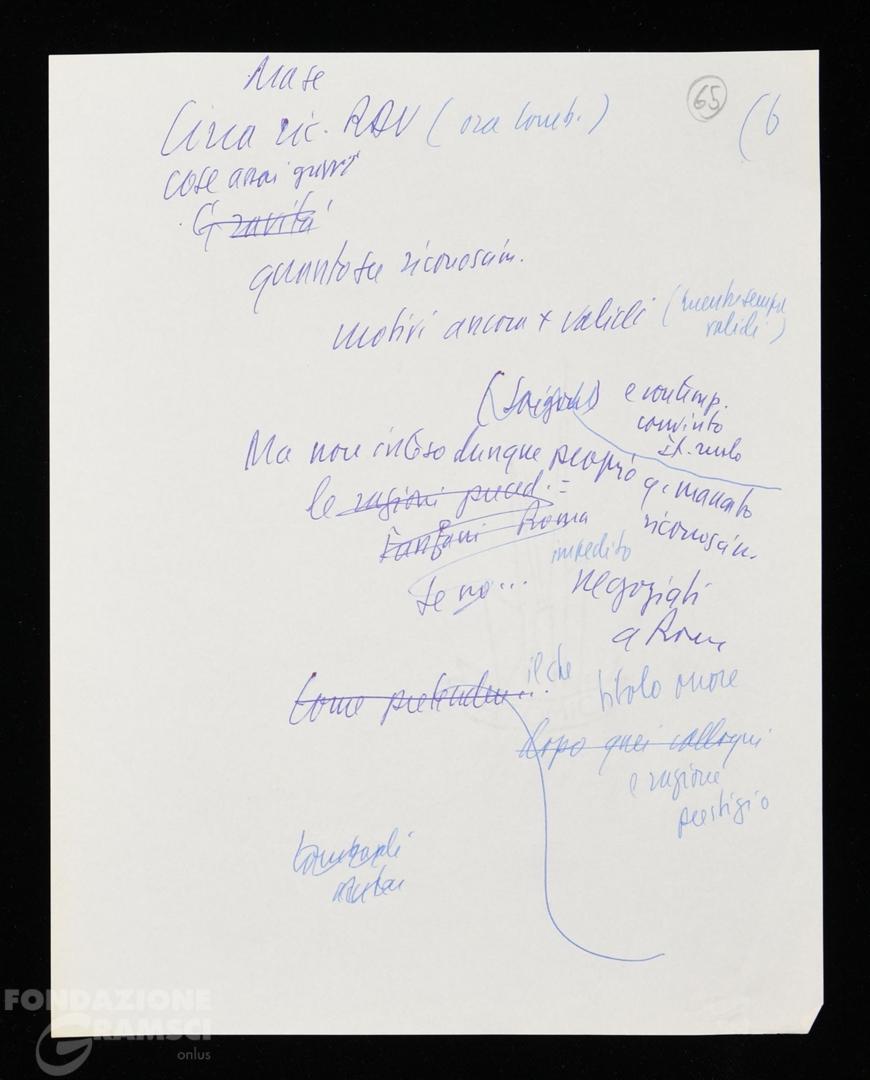 Ma se
65
(6
Circa ric. RDV (ora Lomb.)
cose assai gravi
Gravità
quanto su riconoscim.
motivi ancora + validi (
validi)
(Saigon) e contemp.
convinto
Ma non inteso dunque proprio
le ragioni preced. =
q. mancato
riconoscim.
Fanfani Roma
impedito
se no...
negoziati
a Roma
il che
Come pretendere...
titolo onore
dopo quei colloqui
e ragione
prestigio
FONDAZIONE
GRAMSCI
onlus